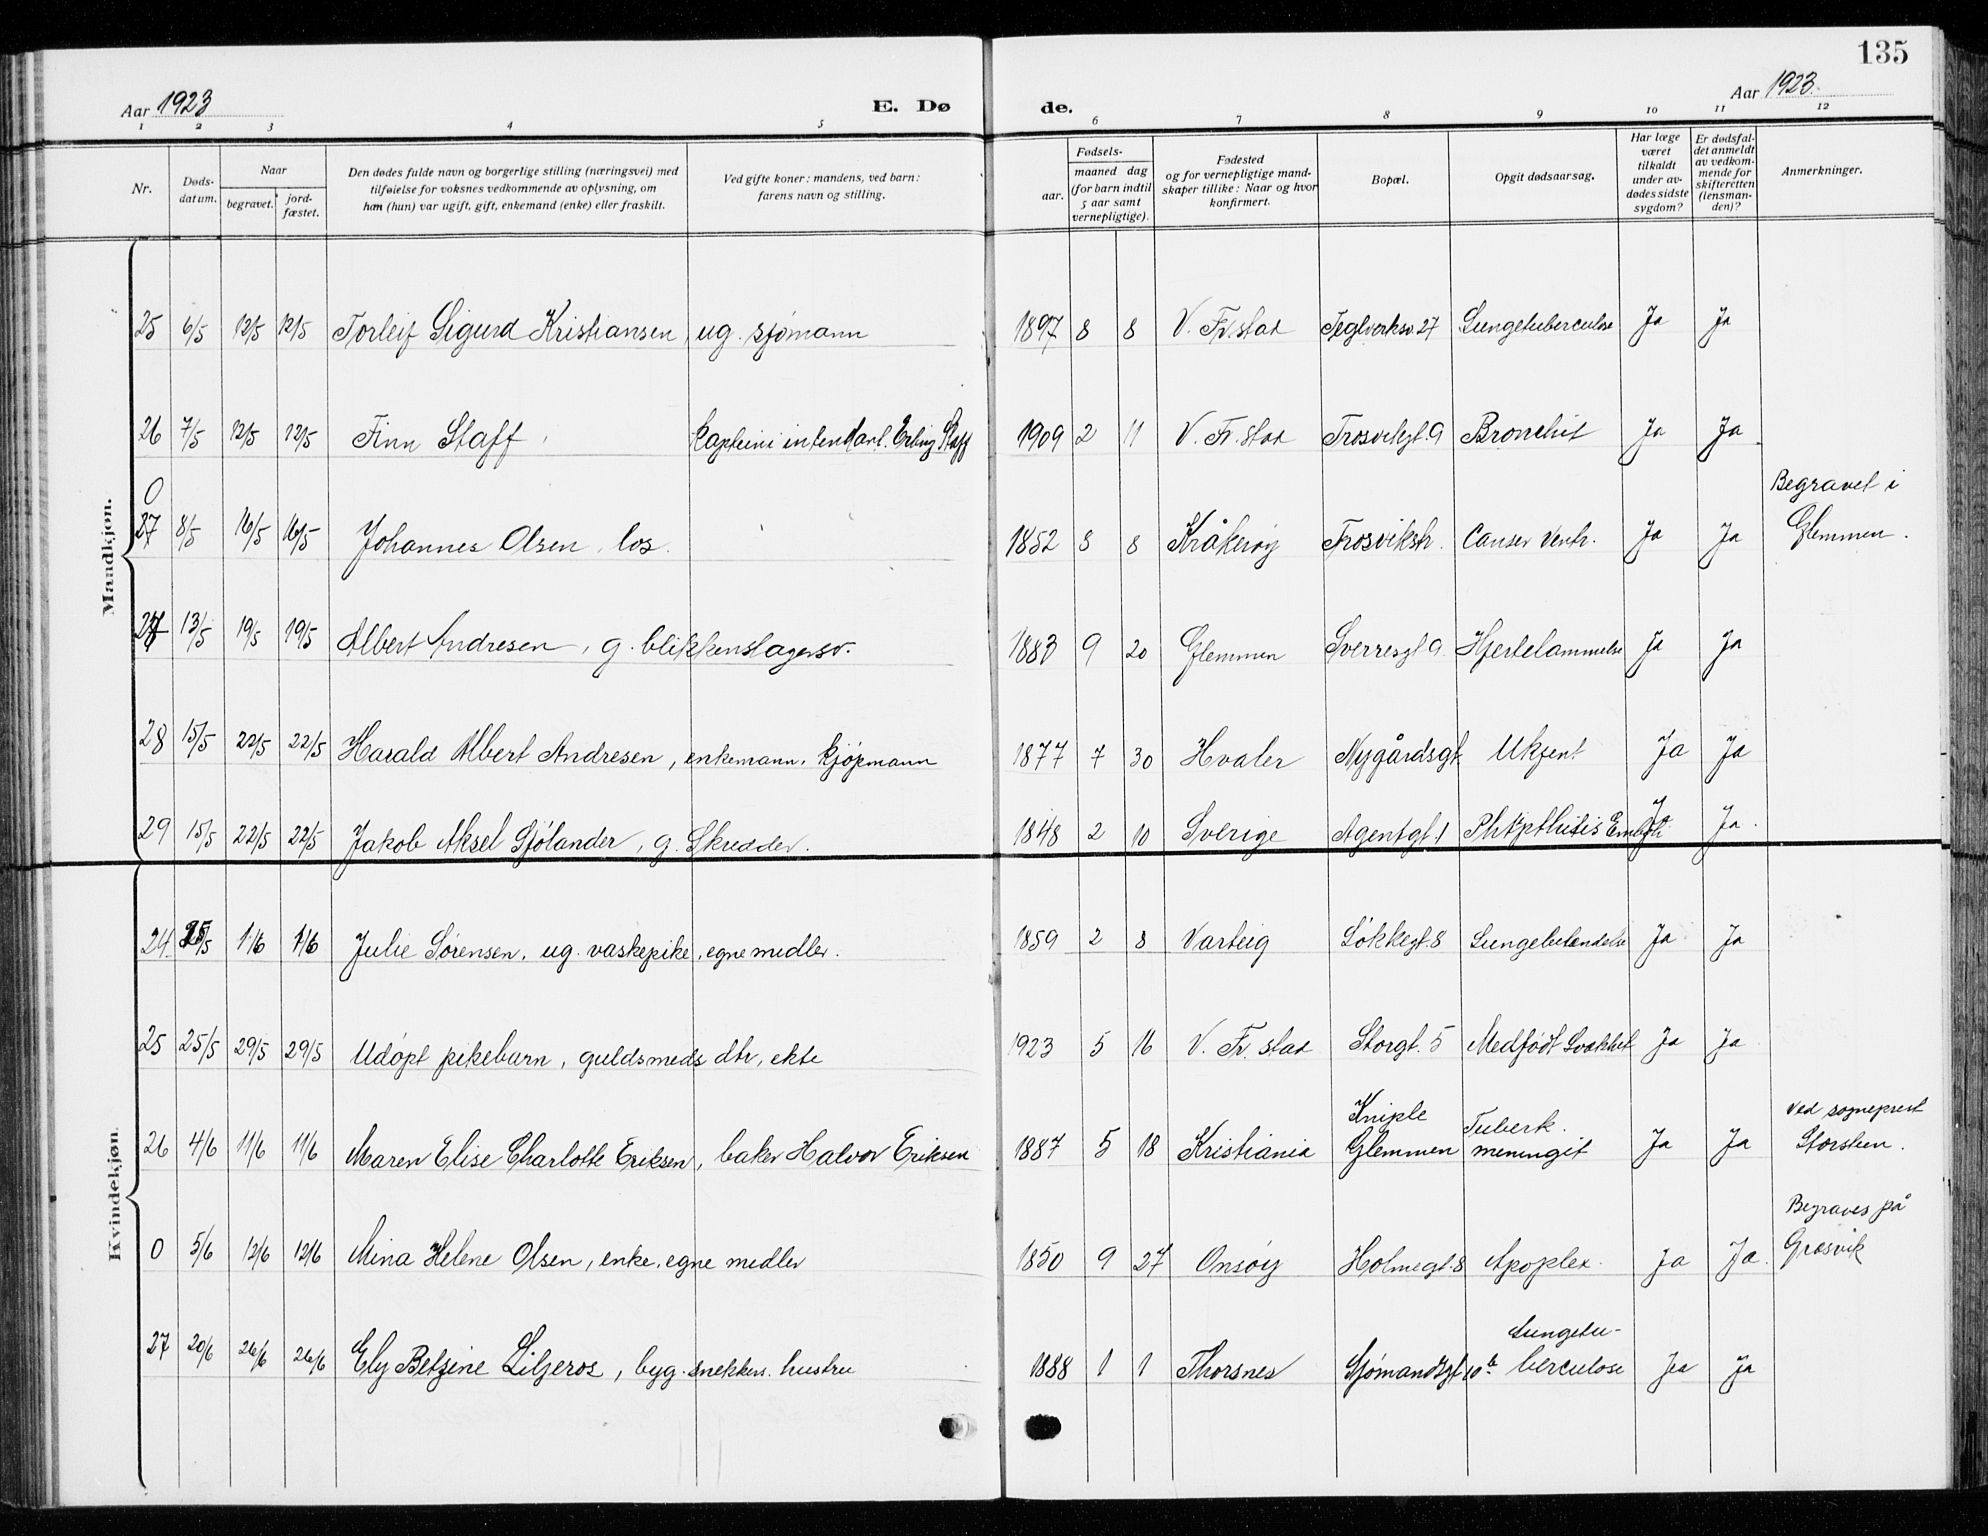 135
Aar 1923 E. Dø de. Aar 1923.
1 2 3 4 5 6 7 8 9 10 11 12
Nr. Døds-datum. Naar begravet. jord-fæstet. Den dødes fulde navn og borgerlige stilling (næringsvei) med tilføielse for voksnes vedkommende av oplysning, om han (hun) var ugift, gift, enkemand (enke) eller fraskilt. Ved gifte koner: mandens, ved barn: farens navn og stilling. Fødsels- aar. maaned dag (for barn indtil 5 aar samt vernepligtige). Fødested og for vernepligtige mandskaper tillike: Naar og hvor konfirmert. Bopæl. Opgit dødsaarsag. Har læge været tilkaldt under avdødes sidste sygdom? Er dødsfaldet anmeldt av vedkommende for skifteretten (lensmanden)? Anmerkninger.
Mandkjøn.
25 6/5 12/5 12/5 Torleif Sigurd Kristiansen, ug. sjømann 1897 8 8 V. Fr.stad Teglverksv. 27 Lungetuberculose Ja Ja
26 7/5 12/5 12/5 Finn Staff, kaptein i intendant. Erling Staff 1909 2 11 V. Fr.stad Trosvikgt. 9 Bronchit Ja Ja
0 27 8/5 16/5 16/5 Johannes Olsen, los. 1852 8 8 Kråkerøy Trosvikstr. Canser Ventr. Ja Ja Begravet i Glemmen.
27 13/5 19/5 19/5 Albert Andresen, g. blikkenslagersv. 1883 9 20 Glemmen Sverresgt 9. Hjertelammelse Ja Ja
28 15/5 22/5 22/5 Harald Albert Andresen, enkemann, kjøpmann 1877 7 30 Hvaler Nygårdsgt. Ukjent Ja Ja
29 15/5 22/5 22/5 Jakob Aksel Sjølander, g. Skredder. 1848 2 10 Sverige Agentgt. 1 Emboli Ja Ja.
Kvindekjøn.
24 25/5 1/6 1/6 Julie Sørensen, ug. vaskepike, egne midler. 1859 2 8 Varteig Løkkegt. 8 Lungebetendelse Ja Ja
25 25/5 29/5 29/5 Udøpt pikebarn, guldsmeds dtr, ekte 1923 5 16 V. Fr.stad Storgt. 5 Medfødt Svakhet Ja Ja
26 4/6 11/6 11/6 Maren Elise Charlotte Eriksen, baker Halvor Eriksen 1887 5 18 Kristiania Kniple Glemmen Tuberk. meningit Ja Ja Ved sogneprest Storsteen.
0 5/6 12/6 12/6 Mina Helene Olsen, enke, egne midler 1850 9 27 Onsøy Holmegt. 8 Apoplex. Ja Ja. Begraves på Græsvik
27 20/6 26/6 26/6 Ely Betzine Liljeros, byg. snekkers hustru 1888 1 1 Thorsnes Sjømandsgt 10b Lungetuberculose Ja Ja